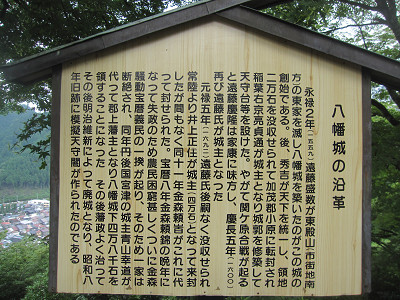 八幡城の沿革
永禄２年（一五五九）遠藤盛数が東殿山（市街地南
方）の東家を滅し八幡山に城を築いたのがこの城の
創始である。後、秀吉が天下を統一し、領地
二万石を没収せられて加茂郡小原に転封され
稲葉右京亮貞通が城主となり城郭を修築して
天守台等を設けた。やがて関ケ原合戦が起る
と遠藤慶隆は家康に味方し、慶長五年（一六〇〇）
再び遠藤氏が城主となった
元禄五年（一六九二）遠藤氏後嗣なく没収せられ
常陸より井上正任が城主（四万石）となつて来封
したが間もなく同十一年金森頼旹がこれに代
つて封せられた。宝暦八年金森頼錦の晩年に
なって失政のため農民困窮甚しくついに金森
騒動宝暦義民の一揆が起り、そのため一家は
断絶され、同年丹後国宮津城主青山幸道が
代って郡上藩主となり八幡城下四万八千石を
領することになった その後藩政よく治って
その後明治維新によって廃城となり、昭和八
年旧跡に模擬天守閣が作られたのである